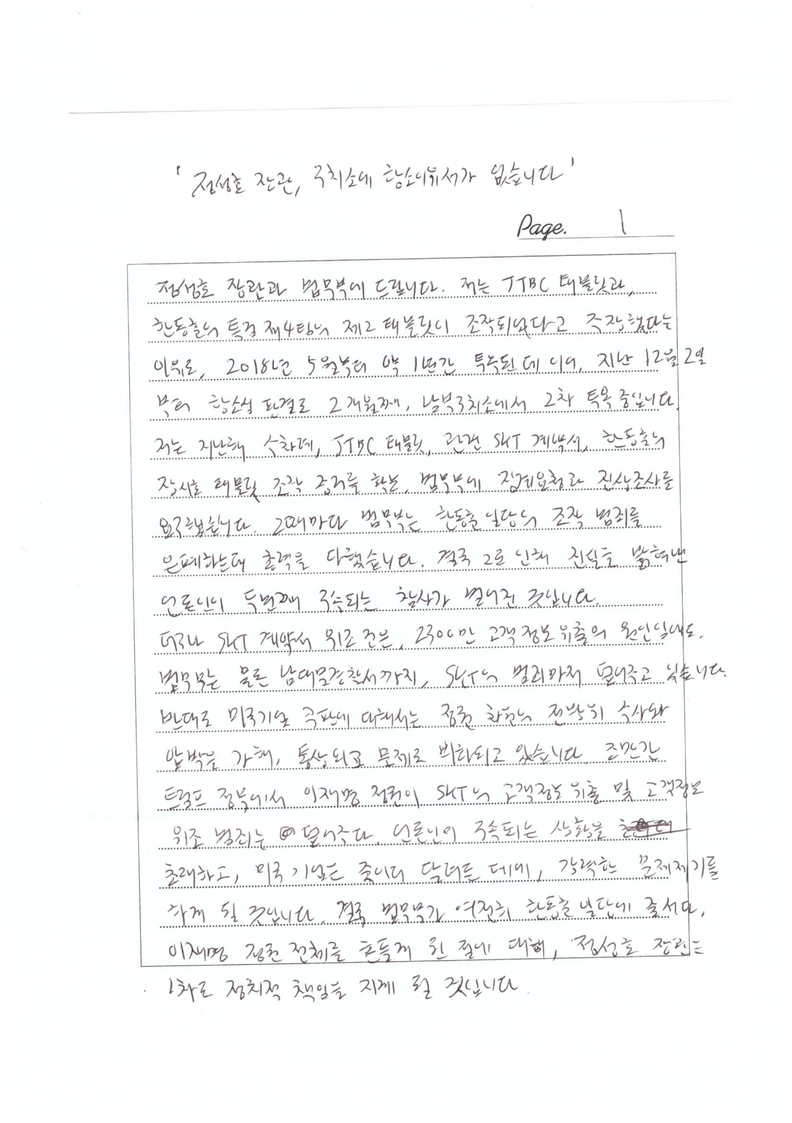 '정성호 장관, 구치소에 항소이유서가 없습니다'
Page. 1
정성호 장관과 법무부에 드립니다. 저는 JTBC 태블릿과,
한동훈의 특검 제4팀의 제2 태블릿이 조작되었다고 주장했다는
이유로, 2018년 5월부터 약 1년간 투옥된 데 이어, 지난 12월 2일
부터 항소심 판결로 2개월째, 남부구치소에서 2차 투옥 중입니다.
저는 지난해 수차례, JTBC 태블릿, 관련 SKT 계약서, 한동훈의
장시호 태블릿 조작 증거를 확보, 법무부에 징계요청과 진상조사를
요구했습니다. 그때마다 법무부는 한동훈 일당의 조작 범죄를
은폐하는데 총력을 다했습니다. 결국 그로 인해 진실을 밝혀낸
언론인이 두번째 구속되는 참사가 벌어진 것입니다.
더구나 SKT 계약서 위조 건은, 2300만 고객정보 유출의 원인임에도,
법무부는 물론 남대문경찰서까지, SKT의 범죄마저 덮어주고 있습니다.
반대로 미국기업 쿠팡에 대해서는 정권 차원의 전방위 수사와
압박을 가해, 통상외교 문제로 비화되고 있습니다 조만간
트럼프 정부에서 이재명 정권이 SKT의 고객정보 유출 및 고객정보
위조 범죄는 덮어주다, 언론인이 구속되는 상황을
초래하고, 미국 기업은 죽이려 달려든 데에, 강력한 문제제기를
하게 될 것입니다. 결국 법무부가 여전히 한동훈 일당에 줄서다,
이재명 정권 전체를 흔들게 된 점에 대해, 정성호 장관은
1차로 정치적 책임을 지게 될 것입니다.